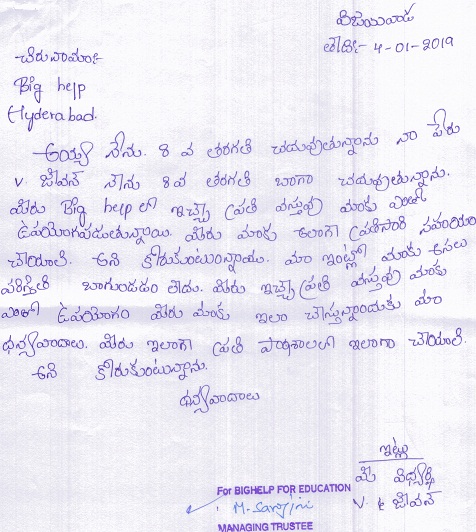 విజయవాడ
తేది:- 4-01-2019
చిరునామా:-
Big help
Hyderabad.
అయ్యా నేను. 8 వ తరగతి చదువుతున్నాను నా పేరు
V. జీవన్ నేను 8వ తరగతి బాగా చదువుతున్నాను.
మీరు Big help లో ఇచ్చే ప్రతి వస్తువు మాకు ఎంతో
ఉపయోగపడుతున్నాయి. మీరు మాకు ఇలాగ ప్రతిసారి సహాయం
చేయాలి. అని కోరుకుంటున్నాము. మా ఇంట్లో మాకు అసలు
పరిస్థితి బాగుండడం లేదు. మీరు ఇచ్చే ప్రతి వస్తువు మాకు
ఎంతో ఉపయోగం మీరు మాకు ఇలా చేస్తున్నందుకు మా
ధన్యవాదాలు. మీరు ఇలాగా ప్రతి పాఠశాలలో ఇలాగా చేయాలి.
అని కోరుకుంటున్నాను.
ధన్యవాదాలు
ఇట్లు
మీ విద్యార్థి
V. జీవన్
For BIGHELP FOR EDUCATION
M. Sarojini
MANAGING TRUSTEE